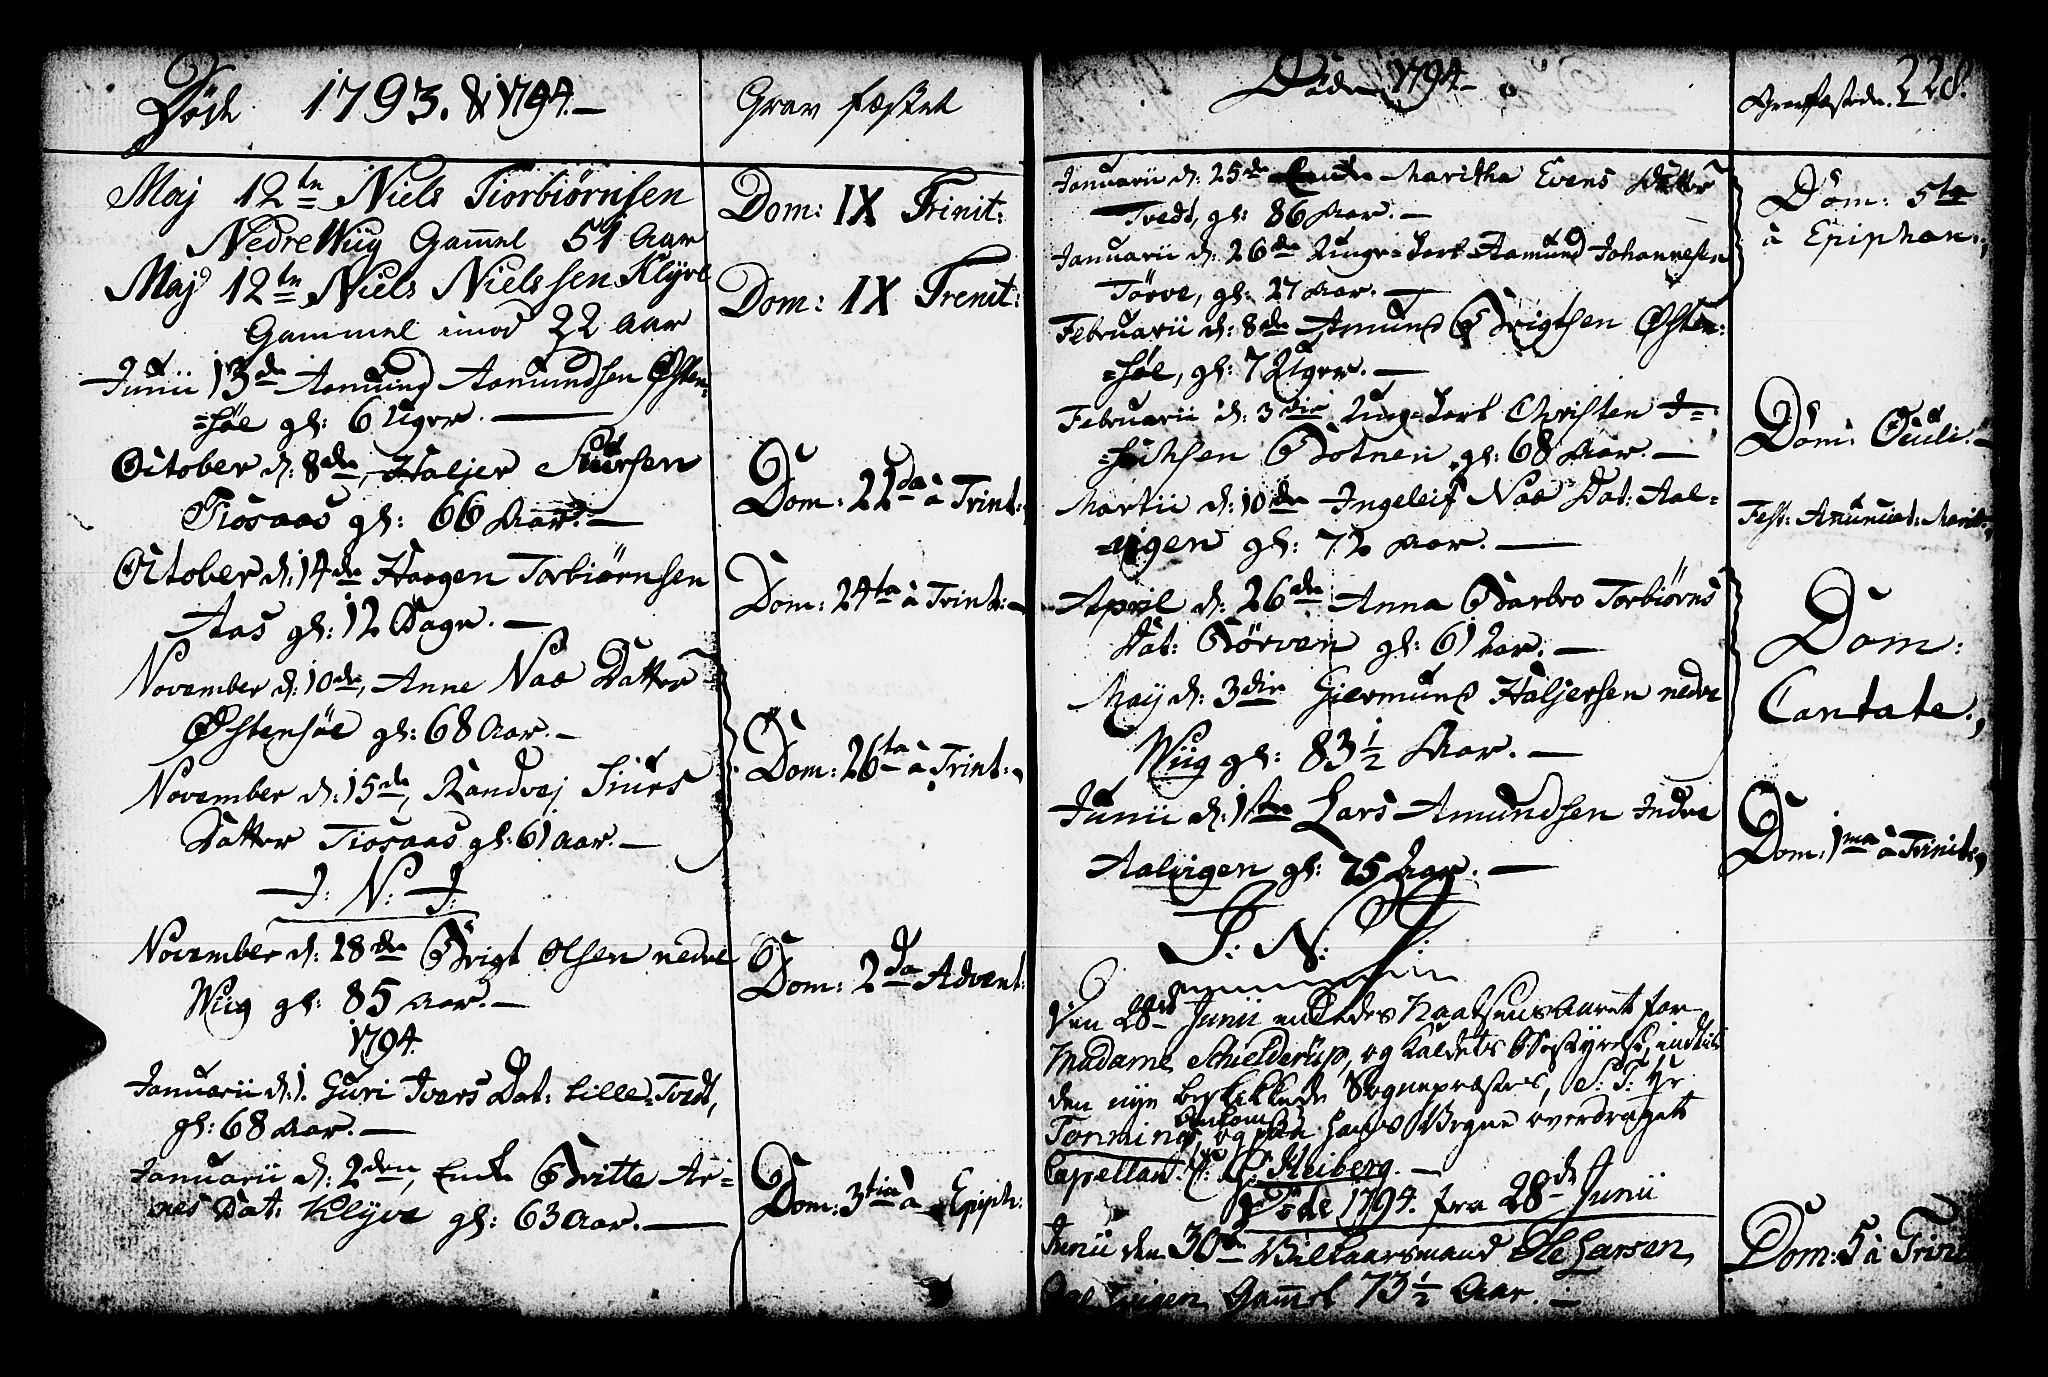 Døde 1793. & 1794.—
Grav fæstet
Maj 12te Niels Tiorbiørnsen
Nedre Wiig Gam̄el 51 Aar
Dom: IX Trinit:
Maj 12te Niels Nielssen Klyve
Gammel imod 22 Aar
Dom: IX Trenit:
Junii 13de Aamund Aamundsen Østen-
=søe gl: 6 Uger. —
October d: 8de, Haljer Siursen
Tiosaas gl: 66 Aar. —
Dom: 22da à Trint:
October d: 14de Haagen Torbiørnsen
Aas gl: 12 Dage. —
Dom: 24ta à Trint: —
November d: 10de, Anne Naes Datter
Østensøe gl: 68 Aar. —
November d: 15de, Randvej Siurs
Datter Tiosaas gl: 61 Aar. —
Dom: 26ta à Trint:
J: N: J:
November d: 28de Brigt Olsen nedre
Wiig gl: 85 Aar. —
Dom: 2da Advent:
1794.
Januarii d: 1. Guri Ivers Dat: Lille-Tvedt,
gl: 68 Aar. —
Januarii d: 2den, Enke Britte Ar=
nes Dat: Klyve gl: 63 Aar. —
Dom: 3tia à Epiph:
Døde 1794.—
Gravfæstede. 228.
Januarii d: 25de Maritha Evens Datter
Tvedt, gl: 86 Aar. —
Januarii d: 26de Unge-Karl Aamund Johannesen
Tørve, gl: 27 Aar. —
Dom: 5ta
à Epiphan:
Februarii d: 8de Amund Brigtsen Østen:
=søe, gl: 7 Uger. —
Februarii d: 3die Ung-Karl Christen I=
=sachsen Botnen gl: 68 Aar. —
Dom: Oculi. —
Martii d: 10de Ingeleif Naes Dat: Aal=
=vigen gl: 72 Aar. —
Fest: Anunciat: Mariæ
April d: 26de Anna Barbro Torbiørns
Dat: Børven gl: 61 Aar. —
Maij d: 3die Giermund Haljersen nedre
Wiig gl: 83 1/2 Aar. —
Dom:
Cantate.
Junii d: 1ste Lars Amundsen Indre
Aalvigen gl: 75 Aar. —
Dom: 1ma à Trinit:
J: N: J:
Den 28de Junii endedes Naadsens Aaret for
Madame Schielderup, og Kaldets Bestyrelse, indtil
den nye beskikkede Sognepræstes, S: T: Hr
Tonning ankomst, og paa hans Vegne overdraget
Capellan Heiberg. —
Døde 1794. fra 28de Junii
Junii den 30te Vilkaarsmand Ole Larsen,
Gam̄el 73 1/2 Aar. —
Dom: 5 à Trinit